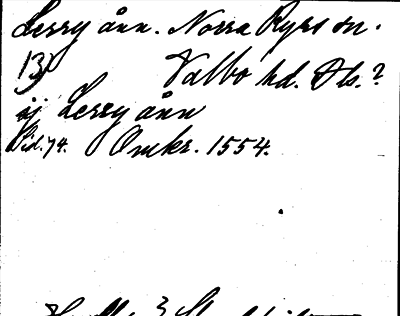 Lerry ånn. Norra Ryrs sn.
13) Valbo hd. Dls.?
ij Lerry ånn
Sid. 74. Omkr. 1554.